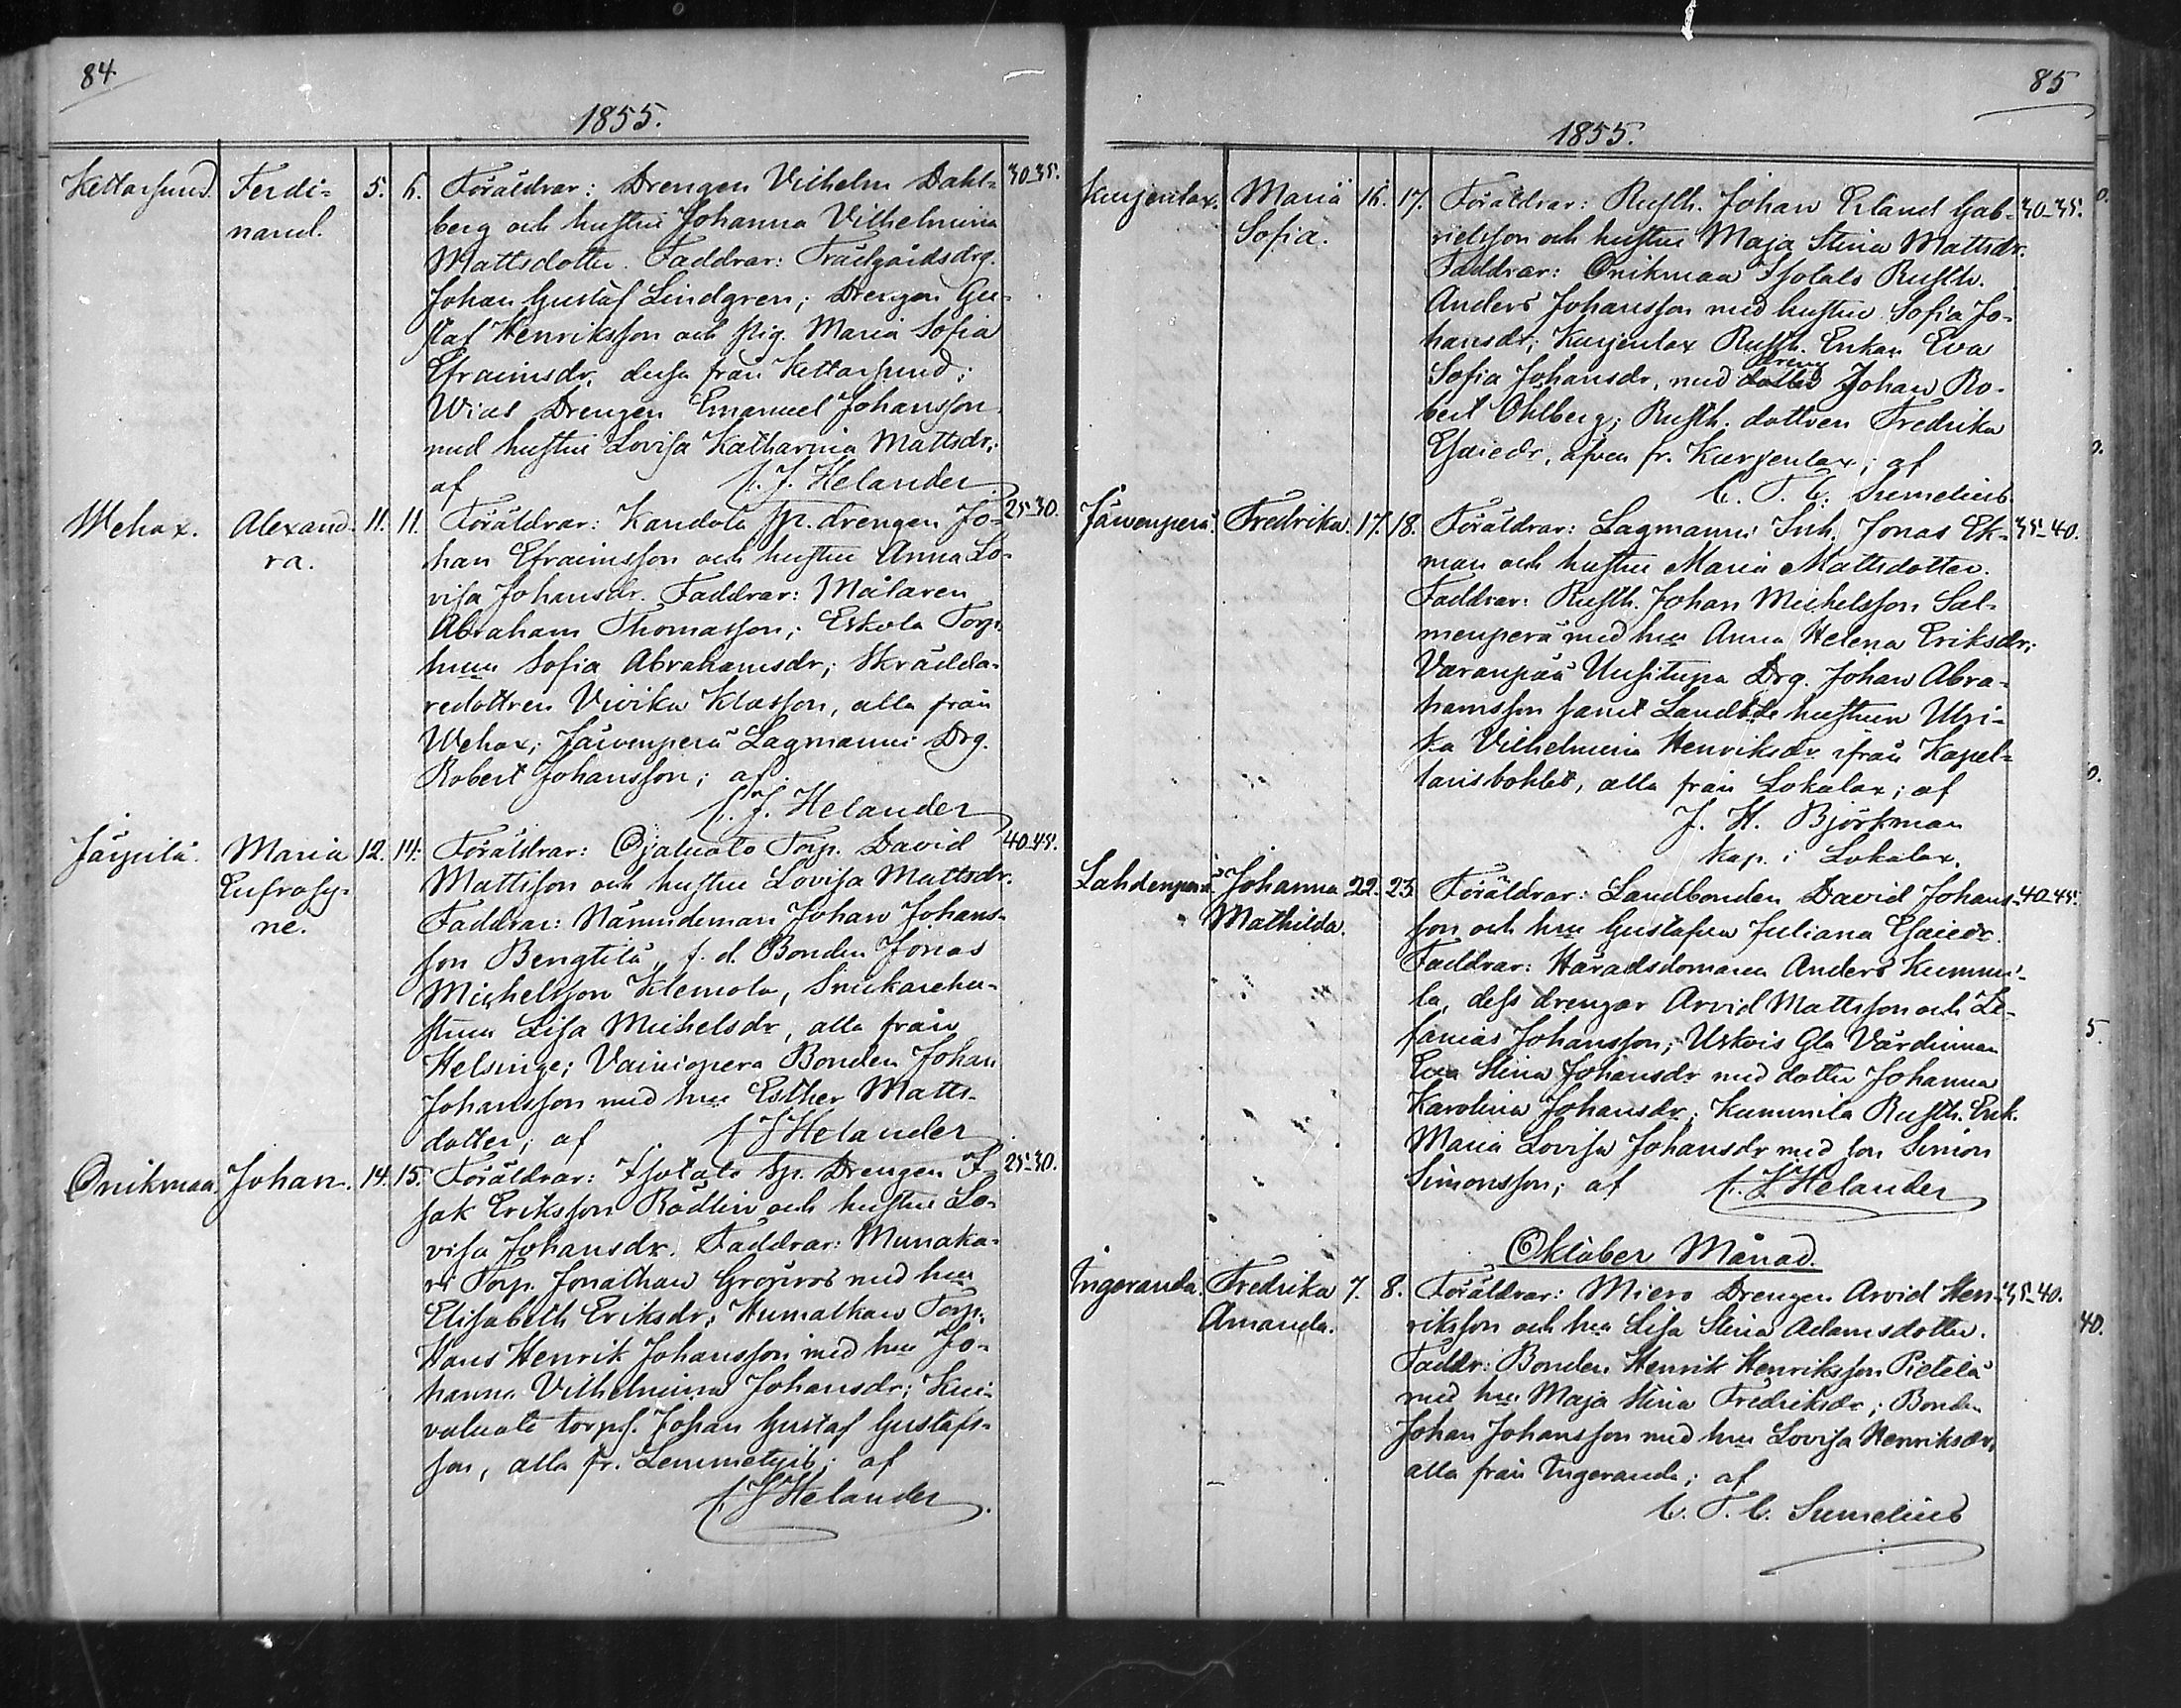 84
1855.
Kettarsund. Ferdi= 5. 6. Föräldrar: Drengen Vilhelm Dahl= 30-35.
nand. berg och hustru Johanna Vilhelmina
Mattsdotter. Faddrar: Trädgårdsdrg.
Johan Gustaf Lindgren; Drengen Gu-
staf Henriksson och pig. Maria Sofia
Efraimsdr, dessa från Kettarsund;
Wias Drengen Emanuel Johansson
med hustru Lovisa Katharina Mattsdr;
af C. J. Helander
Wehax. Alexand- 11. 11. Föräldrar: Kandola sp. drengen Jo- 25-30.
ra. han Efraimsson och hustru Anna Lo-
visa Johansdr. Faddrar: Målaren
Abraham Thomasson; Eskola Torp.
hun Sofia Abrahamsdr; Skrädda-
redottren Vivika Klasson, alla från
Wehax; Järvenperä Lagmanni Drg.
Robert Johansson; af
C. J. Helander
Järpilä. Maria 12. 14. Föräldrar: Ojaluoto Torp. David 40-45.
Eufrosy- Mattsson och hustru Lovisa Mattsdr.
ne. Faddrar: Nämndeman Johan Johans-
son Bengtilä, f. d. Bonden Jonas
Michelsson Klemola, Snickarehu-
strun Lisa Michelsdr, alla från
Helsinge; Vainiopera Bonden Johan
Johansson med hru Esther Matts-
dotter; af C J Helander
Onikmaa. Johan. 14. 15. Föräldrar: Isotalo Sp. Drengen I- 25-30.
sak Eriksson Rödlin och hustru Lo-
visa Johansdr. Faddrar: Munaka-
ri Torp. Jonathan Grönroos med hru
Elisabeth Eriksdr; Humalkari Torp.
Hans Henrik Johansson med hru Jo-
hanna Vilhelmina Johansdr; Kui-
valuoto torps. Johan Gustaf Gustafs-
son, alla fr. Lemmetyis; af
C J Helander
85
1855.
Kurjenlax. Maria 16. 17. Föräldrar: Rusth. Johan Erland Gab- 30-35.
Sofia. rielsson och hustru Maja Stina Mattsdr.
Faddrar: Onikmaa Isotalo Rusth.
Anders Johansson med hustru Sofia Jo-
hansdr; Kurjenlax Rusth. Enkan Eva
dreng
Sofia Johansdr, med dotter Johan Ro-
bert Öhlberg; Rusth. dottren Fredrika
Esaiedr, äfven fr. Kurjenlax; af
C. T. C. Sumelius.
Järvenperä. Fredrika. 17. 18. Föräldrar: Lagmanni Inh. Jonas Ek- 35-40.
man och hustru Maria Mattsdotter.
Faddrar: Rusth. Johan Michelsson Sal-
menperä med hru Anna Helena Eriksdr;
Varanpää Uusitupa Drg. Johan Abra-
hamsson samt Landbde hustrun Ulri-
ka Vilhelmina Henriksdr ifrån Kapel-
lansbohlet, alla från Lokalax; af
J. H. Björkman
Kap. i Lokalax.
Lahdenperä. Johanna 22. 23. Föräldrar: Landbonden David Johans- 40-45.
Mathilda. son och hru Gustafva Juliana Esaiedr.
Faddrar: Häradsdomaren Anders Kummi-
la, dess drengar Arvid Mattsson och Ze-
fanias Johansson; Uskois Gla Värdinnan
Eva Stina Johansdr med dotter Johanna
Karolina Johansdr; Kummila Rusth. Enk.
Maria Lovisa Johansdr med son Simon
Simonsson; af C. J Helander
Oktober Månad.
Ingeranda. Fredrika 7. 8. Föräldrar: Miero Drengen Arvid Hen- 35-40.
Amanda. riksson och hru Lisa Stina Adamsdotter.
Faddr: Bonden Henrik Henriksson Pietilä
med hru Maja Stina Fredriksdr; Bonden
Johan Johansson med hru Lovisa Henriksdr,
alla från Ingeranda; af
C. T. C. Sumelius
0.
0.
0.
5.
40.